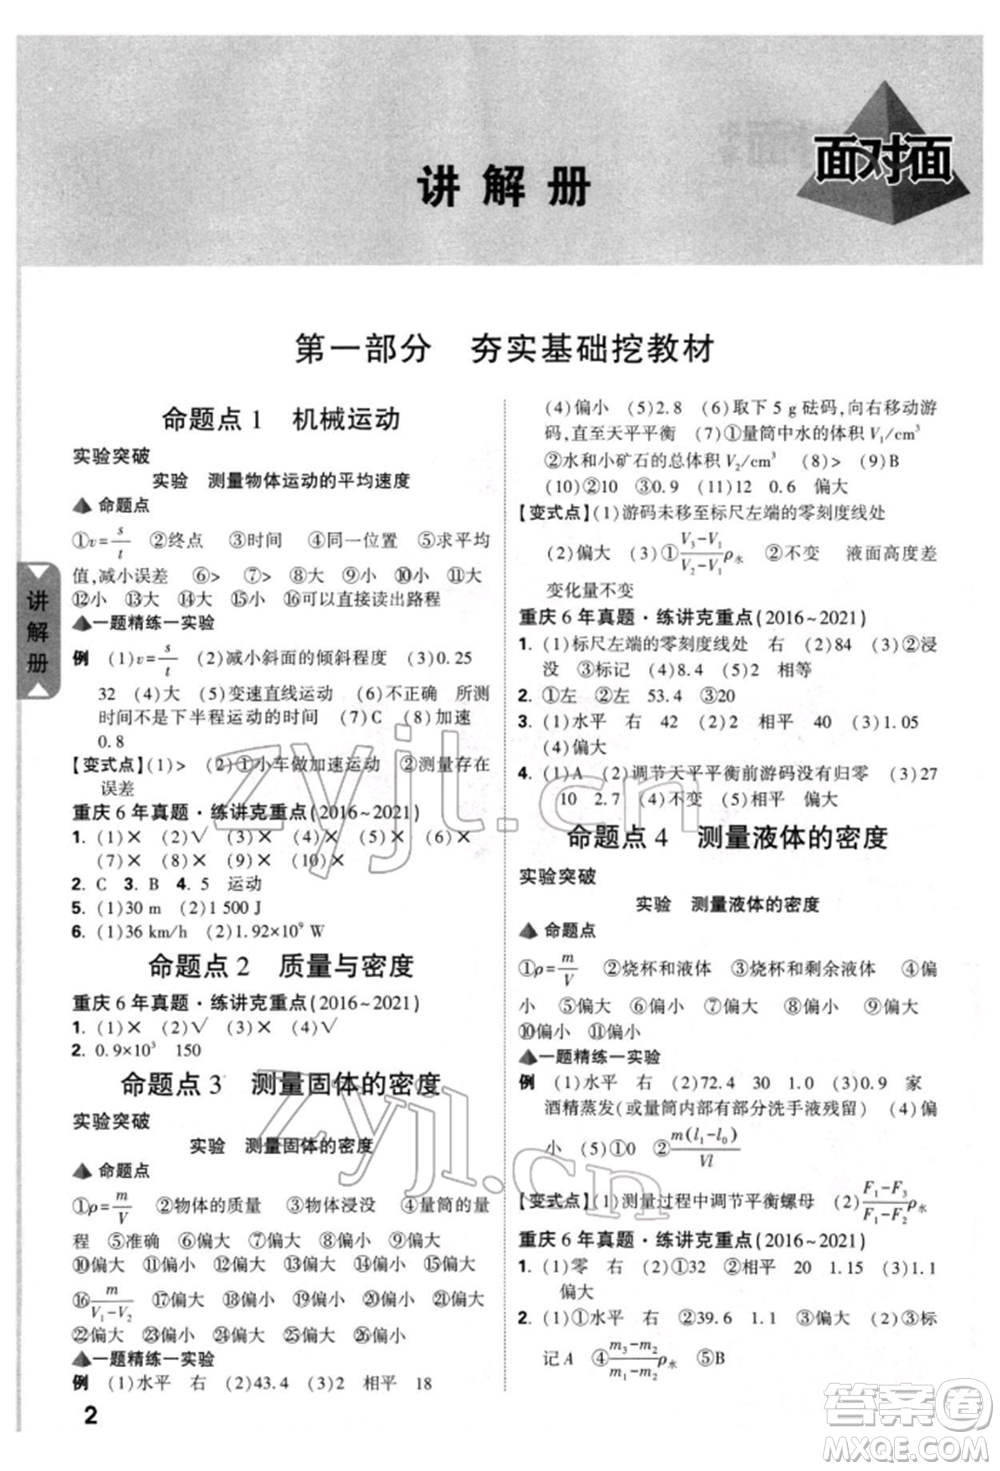 面对面
讲解册
第一部分 夯实基础挖教材
命题点1 机械运动
实验突破
实验 测量物体运动的平均速度
命题点
①v=s/t ②终点 ③时间 ④同一位置 ⑤求平均
值,减小误差 ⑥> ⑦> ⑧大 ⑨大 ⑩大 ⑪大
⑫小 ⑬大 ⑭大 ⑮大 ⑯可以直接读出路程
一题精练一实验
例 (1)v=s/t (2)减小斜面的倾斜程度 (3)0.25
32 (4)大 (5)变速直线运动 (6)不正确 所测
时间不是下半程运动的时间 (7)C (8)加速
0.8
【变式点】(1)> (2)①小车做加速运动 ②测量存在
误差
重庆6年真题·练讲克重点(2016~2021)
1. (1)× (2)√ (3)× (4)× (5)× (6)×
(7)× (8)× (9)× (10)×
2. C 3. B 4. 5 运动
5. (1)30 m (2)1 500 J
6. (1)36 km/h (2)1.92×10⁹ W
命题点2 质量与密度
重庆6年真题·练讲克重点(2016~2021)
1. (1)× (2)√ (3)× (4)√
2. 0.9×10³ 150
命题点3 测量固体的密度
实验突破
实验 测量固体的密度
命题点
①ρ=m/V ②物体的质量 ③物体浸没 ④量筒的量
程 ⑤准确 ⑥偏大 ⑦偏大 ⑧偏大 ⑨偏大
⑩偏大 ⑪偏大 ⑫偏小 ⑬偏大 ⑭偏大 ⑮偏小
⑯m/(V₁-V₂) ⑰偏大 ⑱偏小 ⑲偏大 ⑳偏大 ㉑偏小
㉒偏大 ㉓偏小 ㉔偏大 ㉕偏大 ㉖偏小
一题精练一实验
例 (1)水平 右 (2)43.4 (3)2 相平 18
(4)偏小 (5)2.8 (6)取下5 g砝码,向右移动游
码,直至天平平衡 (7)①量筒中水的体积V₁/cm³
②水和小矿石的总体积V₂/cm³ (8)> (9)B
(10)②10 ③0.9 (11)12 0.6 偏大
【变式点】(1)游码未移至标尺左端的零刻度线处
(2)偏大 (3)①(V₃-V₁)/(V₂-V₁)ρ水 ②不变 液面高度差
变化量不变
重庆6年真题·练讲克重点(2016~2021)
1. (1)标尺左端的零刻度线处 右 (2)84 (3)②浸
没 ③标记 (4)8.4 (5)相等
2. ①左 ②左 53.4 ③20
3. (1)水平 右 42 (2)2 相平 40 (3)1.05
(4)偏大
4. (1)A (2)调节天平平衡前游码没有归零 (3)27
10 2.7 (4)不变 偏大
命题点4 测量液体的密度
实验突破
实验 测量液体的密度
命题点
①ρ=m/V ②烧杯和液体 ③烧杯和剩余液体 ④偏
小 ⑤偏大 ⑥偏大 ⑦偏大 ⑧偏大 ⑨偏大
⑩偏小 ⑪偏小
一题精练一实验
例 (1)水平 右 (2)72.4 30 1.0 (3)0.9 家
酒精蒸发(或量筒内部有部分洗手液残留) (4)偏
小 (5)①0 ②m(l₁-l₀)/Vl
【变式点】(1)测量过程中调节平衡螺母 (2)(F₁-F₃)/(F₁-F₂)ρ水
重庆6年真题·练讲克重点(2016~2021)
1. (1)零 右 (2)①32 ②相平 20 1.15 (3)1.1
偏大
2. (1)①水平 右 ②39.6 ③0.92 偏大 (2)③标
记A ④(m₃-m₁)/(m₂-m₁)ρ水 ⑤B
讲解册
2
zyjl.cn
zyjl.cn
答案圈
MXQE.COM